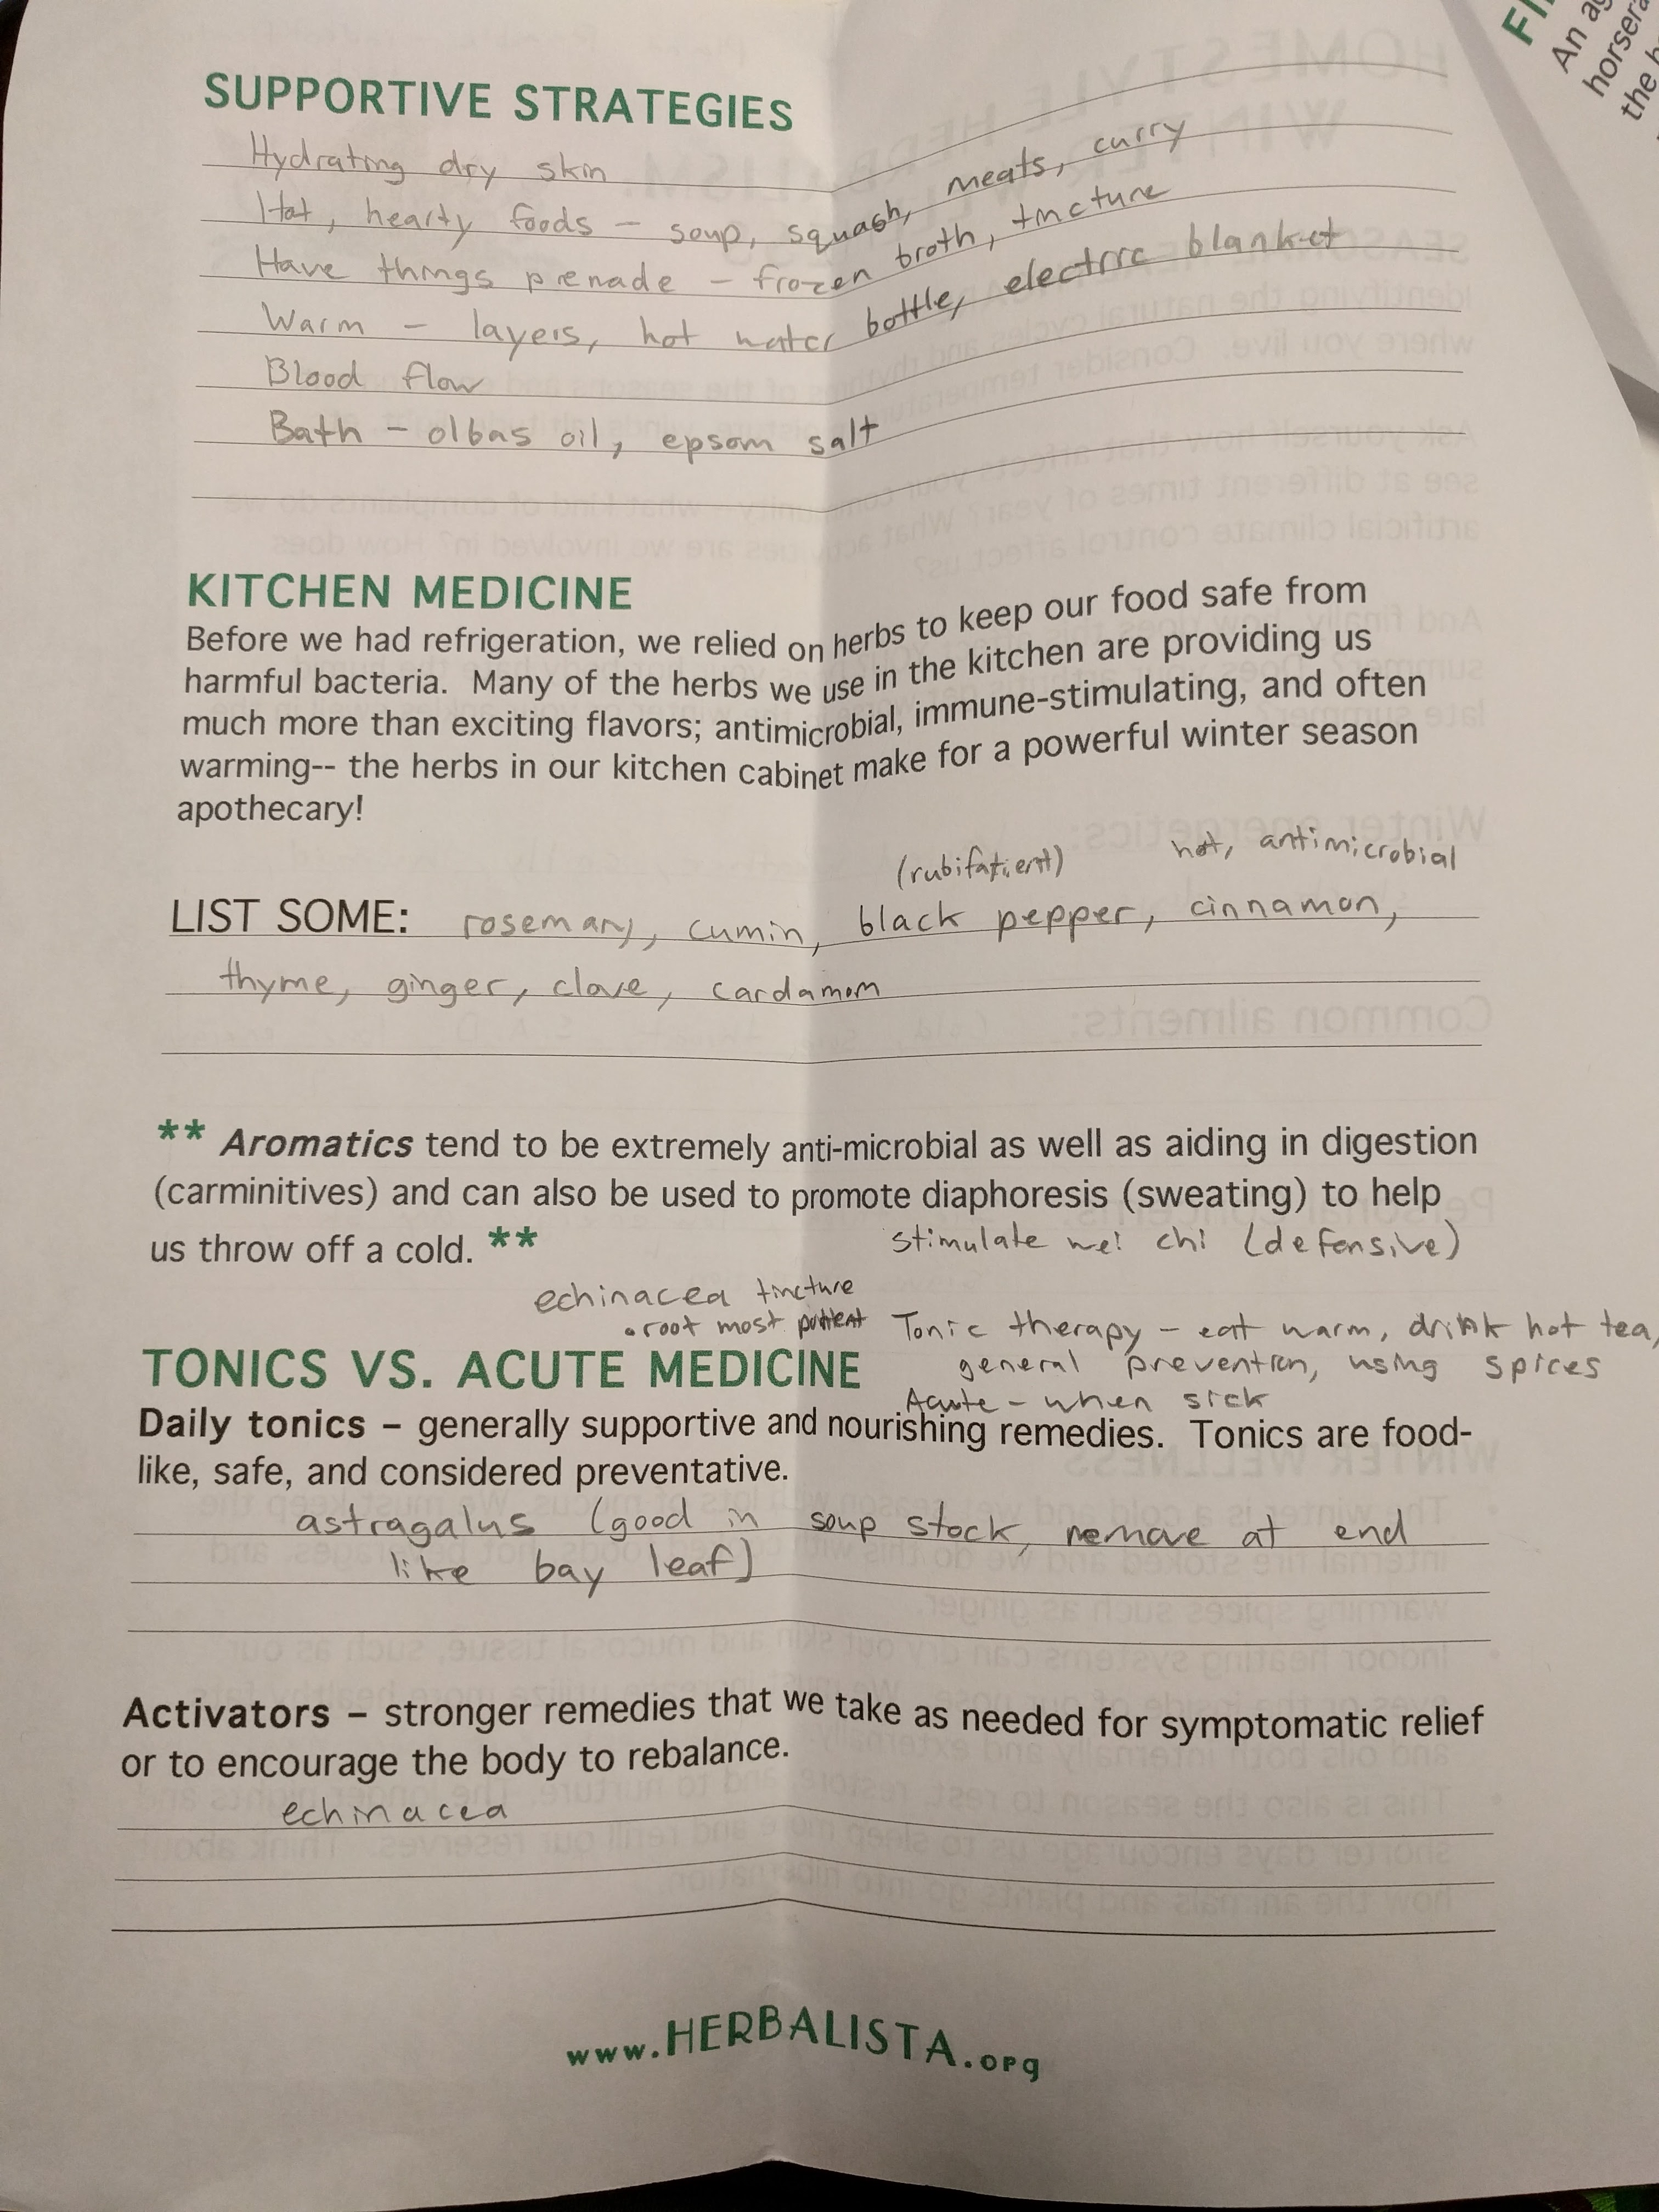 SUPPORTIVE STRATEGIES
Hydrating dry skin
Hot, hearty foods – soup, squash, meats, curry
Have things premade – frozen broth, tincture
Warm – layers, hot water bottle, electric blanket
Blood flow
Bath – olbas oil, epsom salt
KITCHEN MEDICINE
Before we had refrigeration, we relied on herbs to keep our food safe from
harmful bacteria. Many of the herbs we use in the kitchen are providing us
much more than exciting flavors; antimicrobial, immune-stimulating, and often
warming-- the herbs in our kitchen cabinet make for a powerful winter season
apothecary!
(rubifatient) hot, antimicrobial
LIST SOME: rosemary, cumin, black pepper, cinnamon,
thyme, ginger, clove, cardamom
** Aromatics tend to be extremely anti-microbial as well as aiding in digestion
(carminitives) and can also be used to promote diaphoresis (sweating) to help
us throw off a cold. **
stimulate wei chi (defensive)
echinacea tincture
• root most
Tonic therapy – eat warm, drink hot tea,
general prevention, using spices
Acute – when sick
TONICS VS. ACUTE MEDICINE
Daily tonics – generally supportive and nourishing remedies. Tonics are food-
like, safe, and considered preventative.
astragalus (good in soup stock, remove at end
like bay leaf)
Activators – stronger remedies that we take as needed for symptomatic relief
or to encourage the body to rebalance.
echinacea
www.HERBALISTA.org
An
the